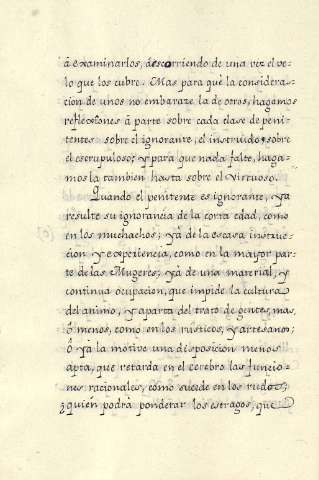 á examinarlos, descorriendo de una vez el ve-
lo que los cubre. Mas para què la considera-
cion de unos no embaraze la de otros, hagamos
reflexiones á parte sobre cada clase de peni-
tentes sobre el ignorante, el instruido, sobre
el escrupuloso; y para que nada falte, haga-
mosla tambien hasta sobre el Virtuoso.
Quando el penitente es ignorante, ya
resulte su ignorancia de la corta edad, como
en los muchachos; yá de la escasa instruc-
cion y experiencia, como en la mayor par-
te de las Mugeres; yá de una material, y
continua ocupacion, que impide la cultura
del animo, y aparta del trato de gentes, mas,
ó menos, como en los rusticos, y artesanos;
ó yà la motive una disposicion menos
apta, que retarda en el cerebro las funcio-
nes racionales, como sucede en los rudos;
¿quien podrà ponderar los estragos, que